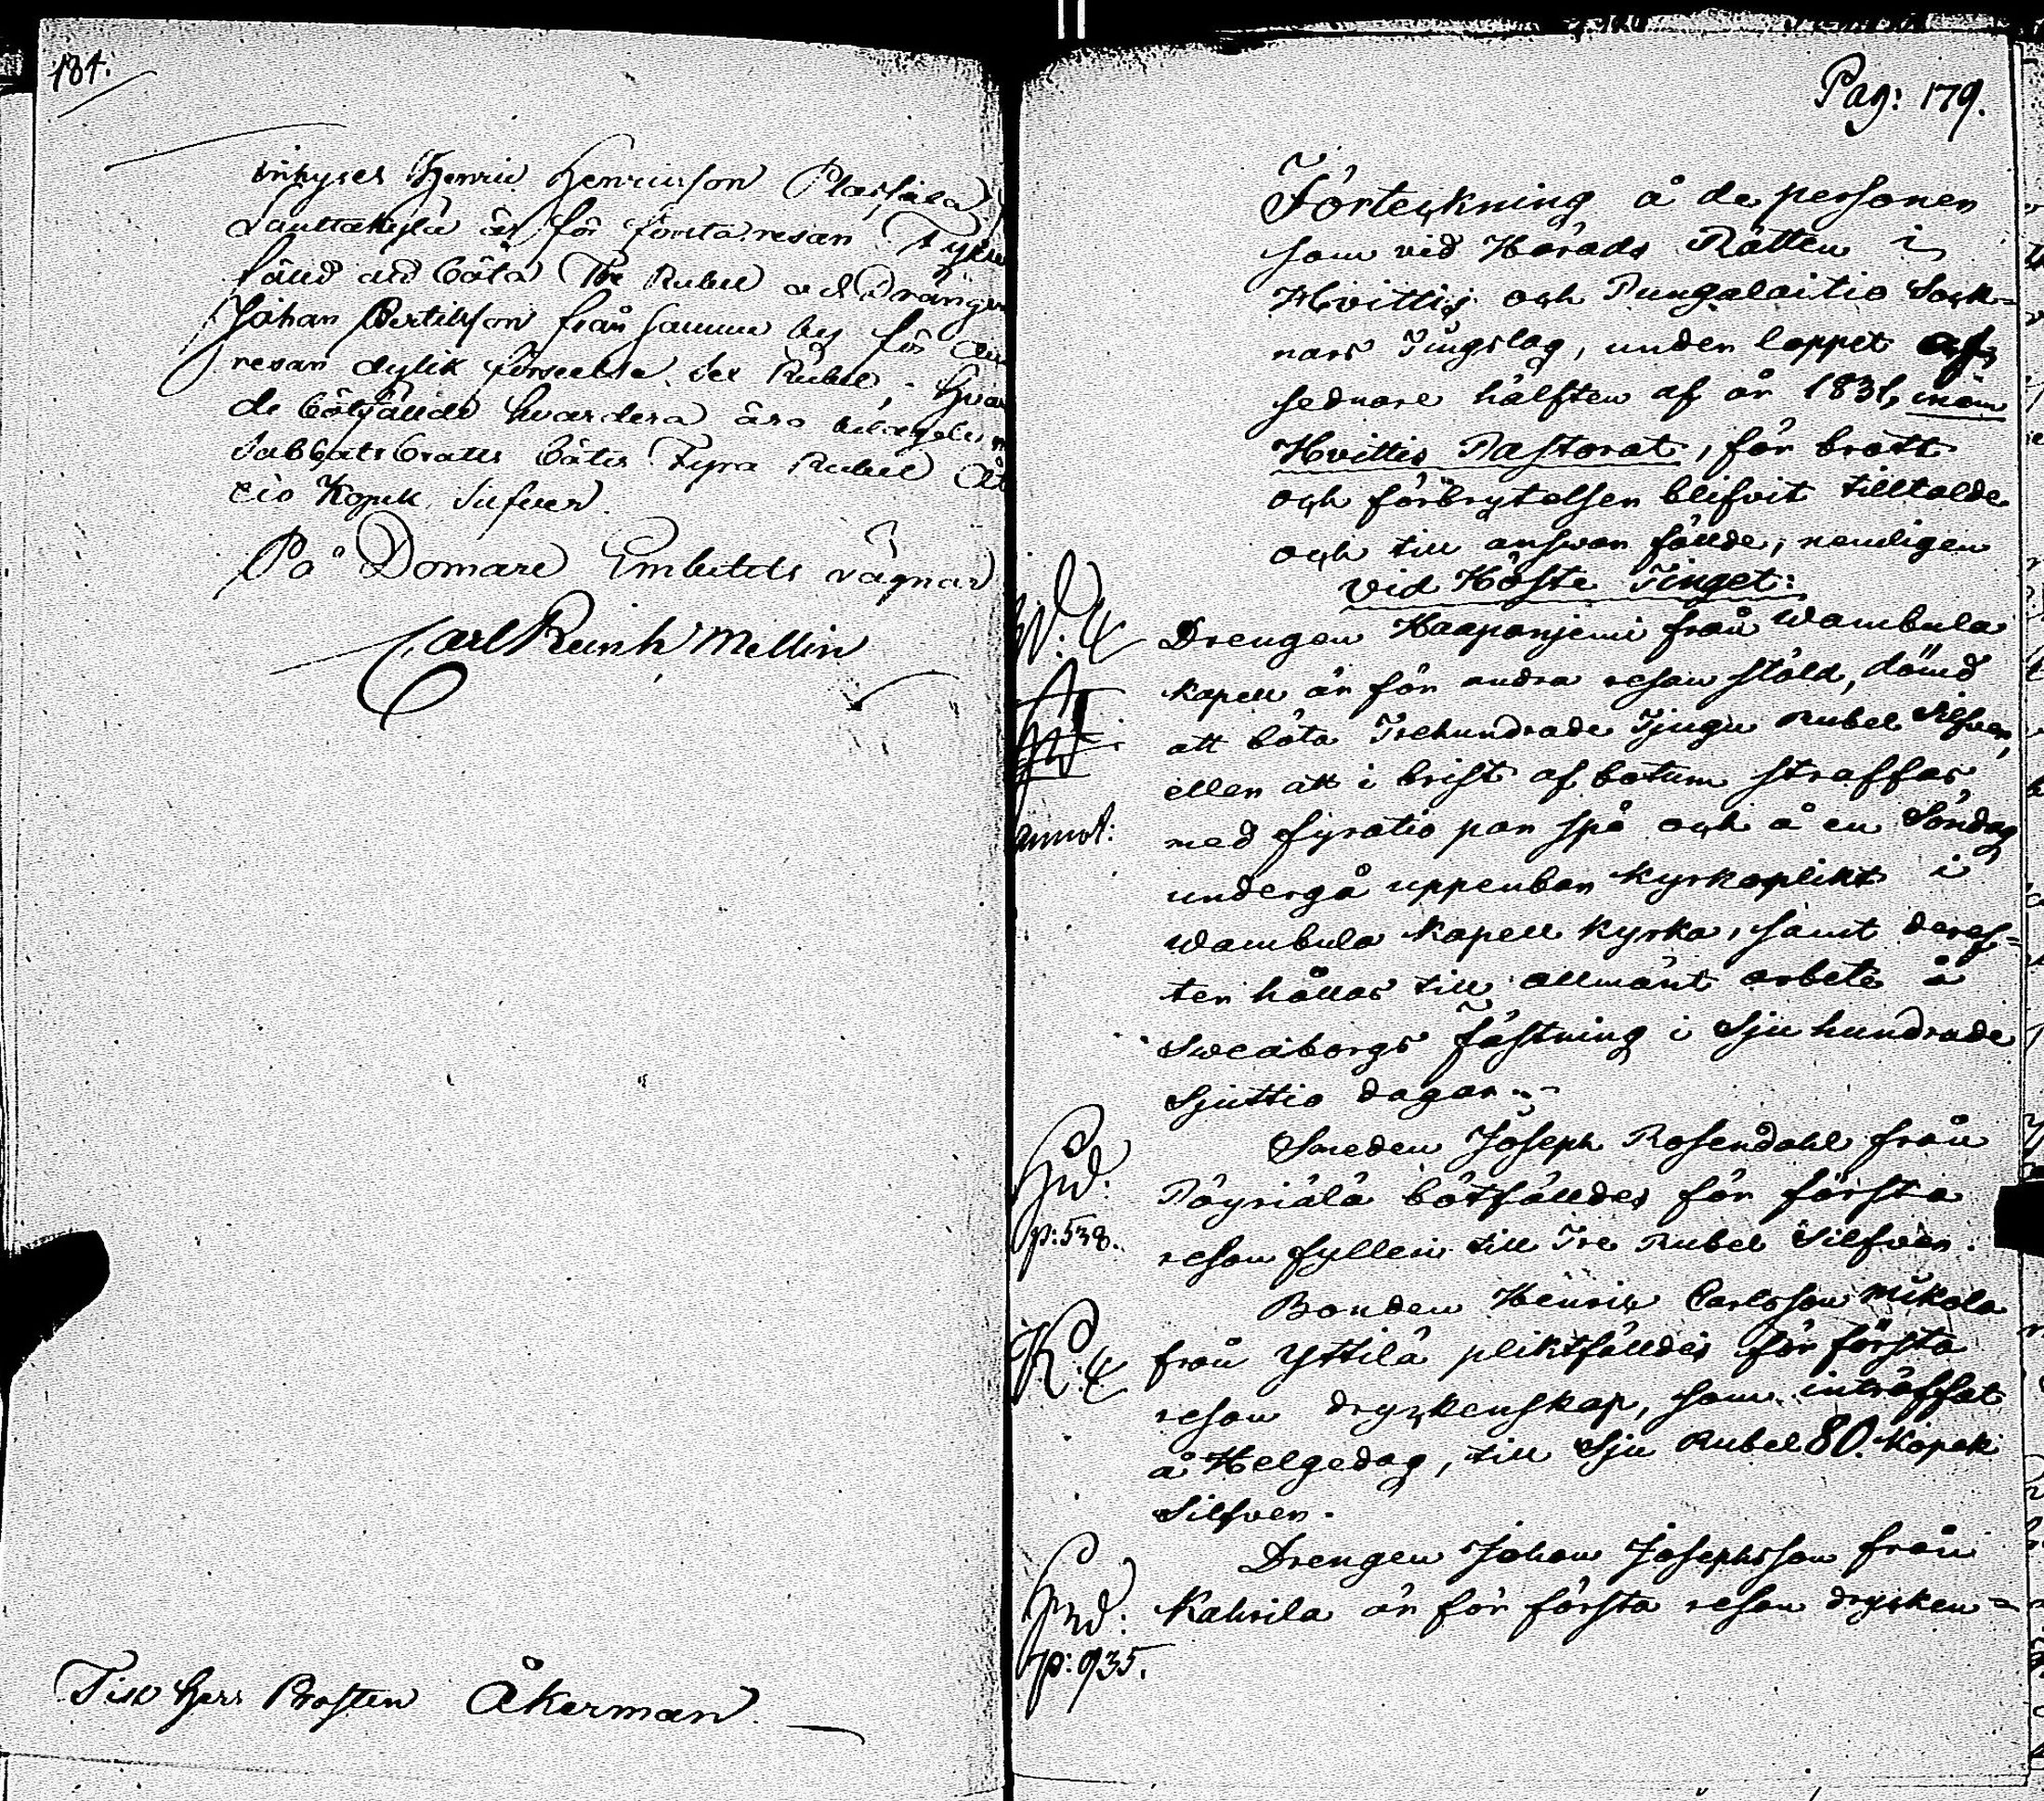 184.
inhyses Henric Henricsson Plassila
Lauttakylä är för första resan Fylle
fäld att böta Tre Rubel och Drängen
Johan Bertilsson från samma by för
resan dylik förseelse sex Rubel;
de bötfälde hvardera äro
sabbatsbrott böta Fyra Rubel
tio Kopek Silfver.
På Domare Embetets vägnar
Carl Reinh Mellin
Till Herr Prosten Åkerman
Pag: 179.
Förteckning å de personer
som vid Härads Rätten i
Hvittis och Pungalaitio Sock-
nars Tingslag, under loppet af
sednare hälften af år 1831, inom
Hvittis Pastorat, för brott
och förbrytelser blifvit tilltalde
och till answar fällde, nemligen
vid Höste Tinget:
W: K
Drengen Haapaniemi från Wambula
kapell är för andra resan stöld, dömd
att böta Trehundrade Tjugu Rubel Silfver,
eller att i brist af böterne straffas
annot:
med fyratio par spö och å en Söndag
undergå uppenbar kyrkoplikt i
Wambula kapell kyrka, samt deref-
ter hållas till allmänt arbete å
Sweaborgs fästning i Sju hundrade
Sjuttio dagar.
Smeden Joseph Rosendahl från
Hvd:
Pöyriälä bötfälldes för första
p: 538.
resan fylleri till Tre Rubel Silfver.
Bonden Henric Carlsson Mikola
K: K
från Yttilä pliktfälldes för första
resan dryckenskap, som inträffat
å Helgedag, till Sju Rubel 80. Kopek
Silfver.
Drengen Johan Josephsson från
Hvd:
Kahrila är för första resan drycken-
p: 935.